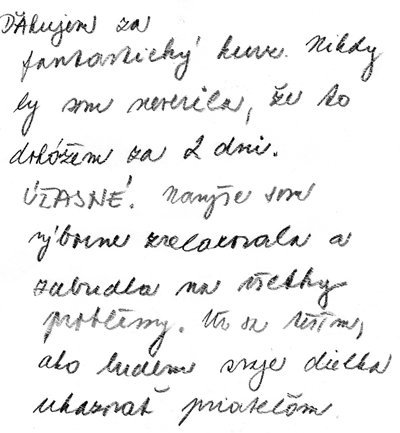 Ďakujem za
fantastický kurz. Nikdy
by som neverila, že to
dokážem za 2 dni.
ÚŽASNÉ! Navyše som
výborne zrelaxovala a
zabudla na všetky
problémy. Už sa teším,
ako budem svoje dielka
ukazovať priateľom